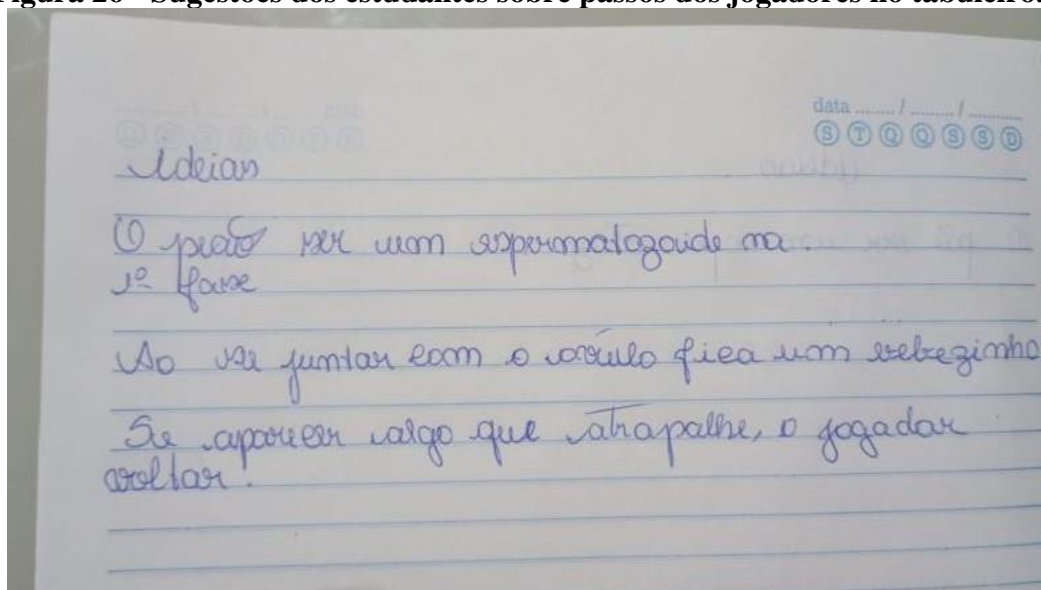 Figura 20 - Sugestões dos estudantes sobre passos dos jogadores no tabuleiro.
data ........ / ........ / ...........
S T Q Q S S D
Ideias
O peão ser um espermatozoide na
1º fase
Ao se juntar com o óvulo fica um bebezinho
Se aparecer algo que atrapalhe, o jogador
voltar.